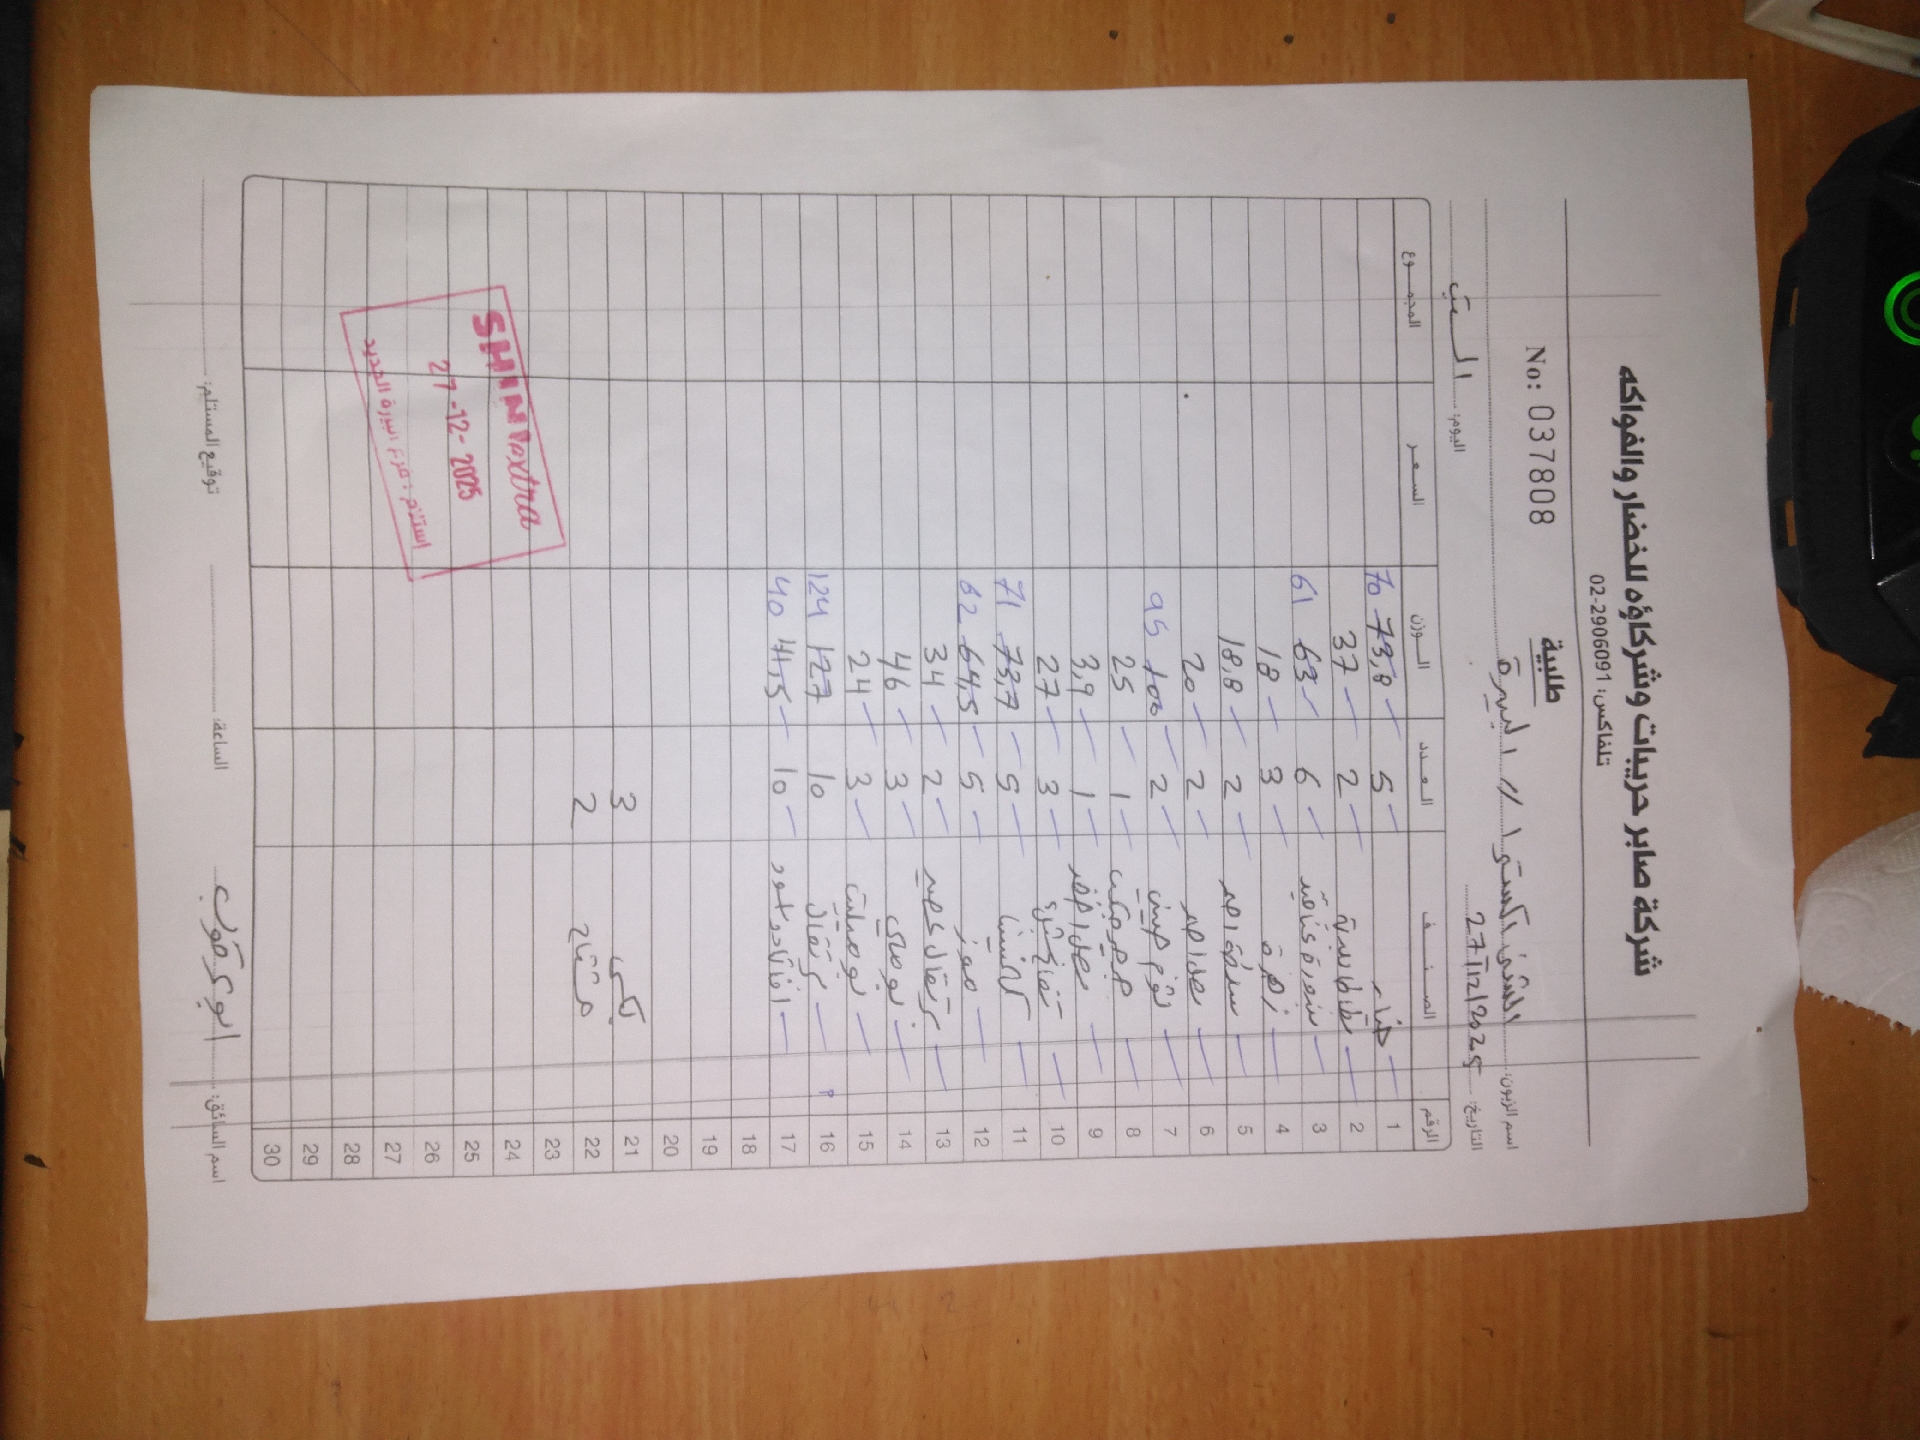 شركة صابر حريبات وشركاؤه للخضار والفواكه
تلفاكس: 02-2906091
طلبية
No: 037808
اسم الزبون: الشني اكسترا // البيرة
التاريخ: 27/12/2025 اليوم: السبت
الرقم الصنف العدد الوزن السعر المجموع
1 خيار 5 73,8 70
2 بطاطا 2 37
3 بندورة 6 63 61
4 زهرة 3 18
5 2 18,8
6 بصل احمر 2 20
7 ثوم صيني 2 100 95
8 1 25
9 بصل اخضر 1 3,9
10 تفاح 3 27
11 كلمنتينا 5 73,7 71
12 موز 5 64,5 62
13 برتقال عصير 2 34
14 بوملي 3 46
15 3 24
16 برتقال 10 127 124
17 افوكادو 10 41,5 40
18
19
20
21 3
22 مشتاح 2
23
24
25
26
27
28
29
30
SHINI extra
27-12-2025
استلام: فرع البيرة الجديد
اسم السائق: ابو الساعة: توقيع المستلم: